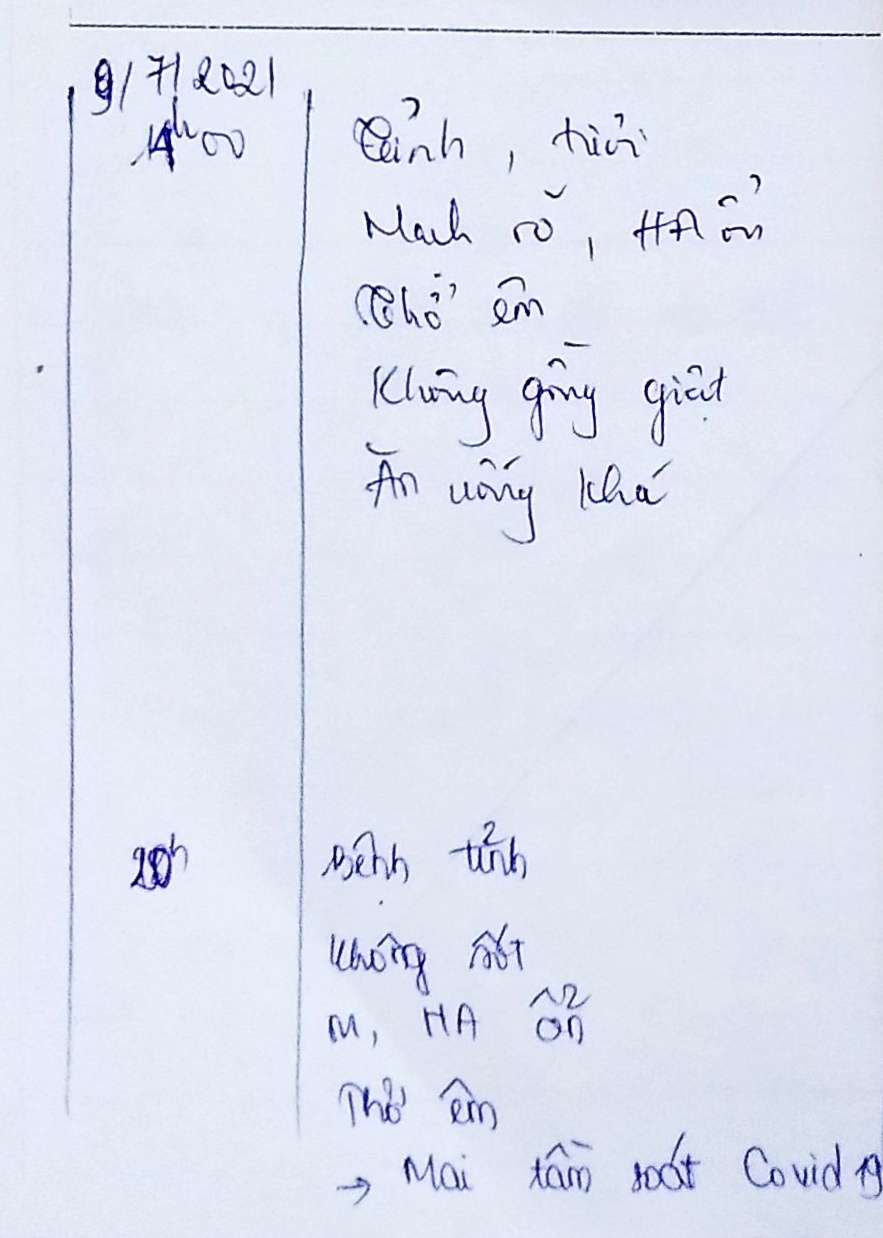 9/7/2021
14h00 Tỉnh, tươi
Mạch rõ, HA ổn
Thở êm
Không gồng giật
Ăn uống khá
20h Bệnh tỉnh
Không sốt
M, HA ổn
Thở êm
→ Mai tầm soát Covid 19